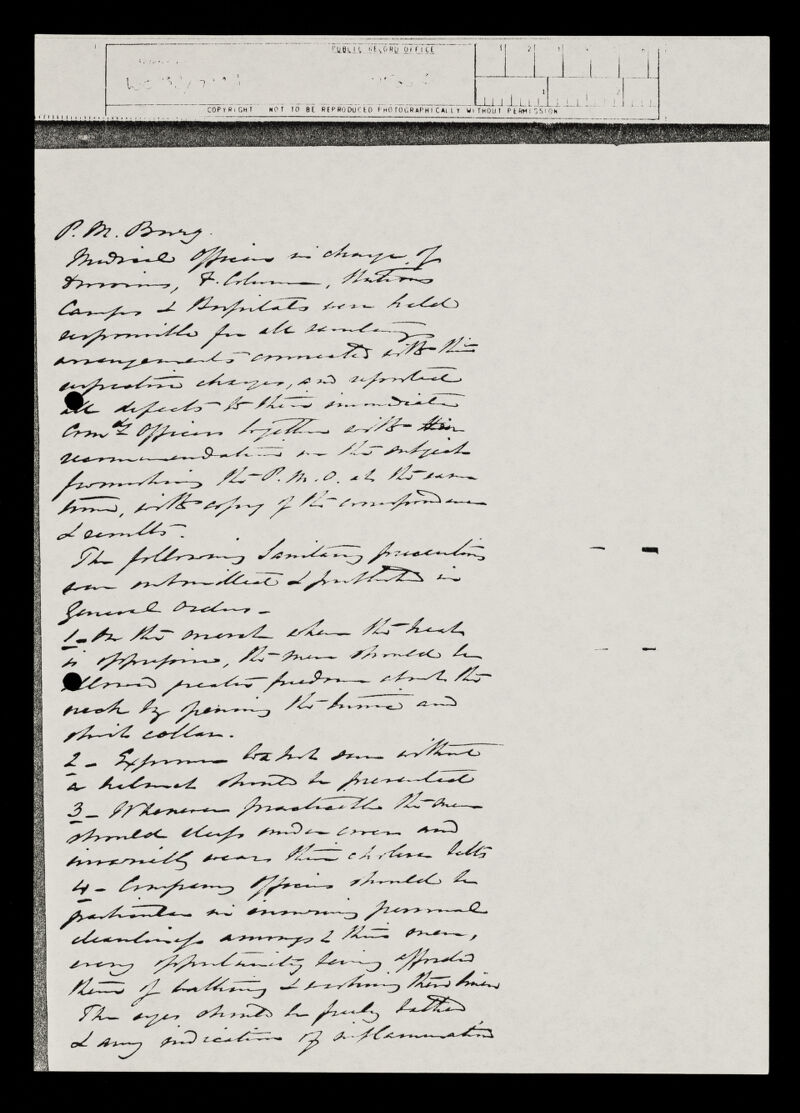 PUBLIC RECORD OFFICE
1 2
COPYRIGHT NOT TO BE REPRODUCED PHOTOGRAPHICALLY WITHOUT PERMISSION
P. M.
Medical Officers in charge of
Divisions, F. Column, Stations
Camps & Hospitals were held
responsible for all sanitary
arrangements connected with their
respective charges, and reported
all defects to their immediate
Comdg Officers together with their
recommendations on the subject
furnishing the P.M.O. at the same
time, with copy of the correspondence
& results.
The following Sanitary precautions
were submitted & published in
General Orders -
1 - On the march when the heat
is oppressive, the men should be
allowed greater freedom about the
neck by opening the tunic and
shirt collar.
2 - Exposure to hot sun without
a helmet should be prevented
3 - Whenever practicable the men
should sleep under cover and
invariably wear their cholera belts
4 - Company Officers should be
particular in ensuring personal
cleanliness amongst their men,
every opportunity being afforded
them of bathing & washing their linen
The eyes should be freely bathed
& any indication of inflammation